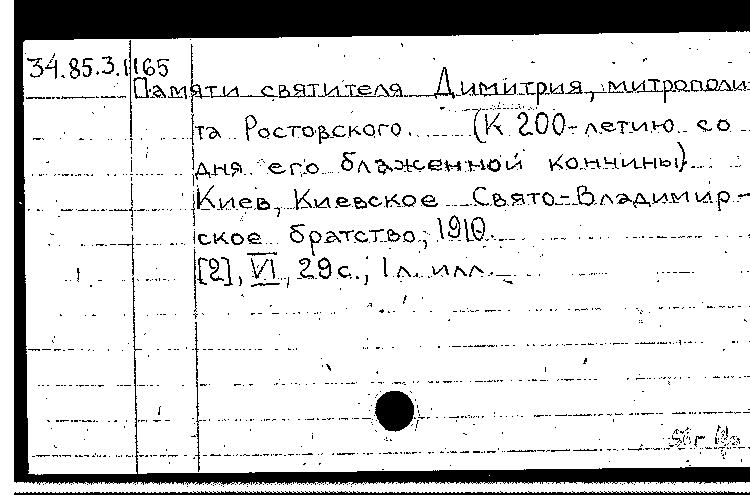 34.85.3.1165
Памяти святителя Димитрия, митрополи
та Ростовского. (К 200-летию со
дня его блаженной кончины)
Киев, Киевское Свято-Владимир-
ское братство, 1910.
[2], VI, 29 с.; 1 л. илл.